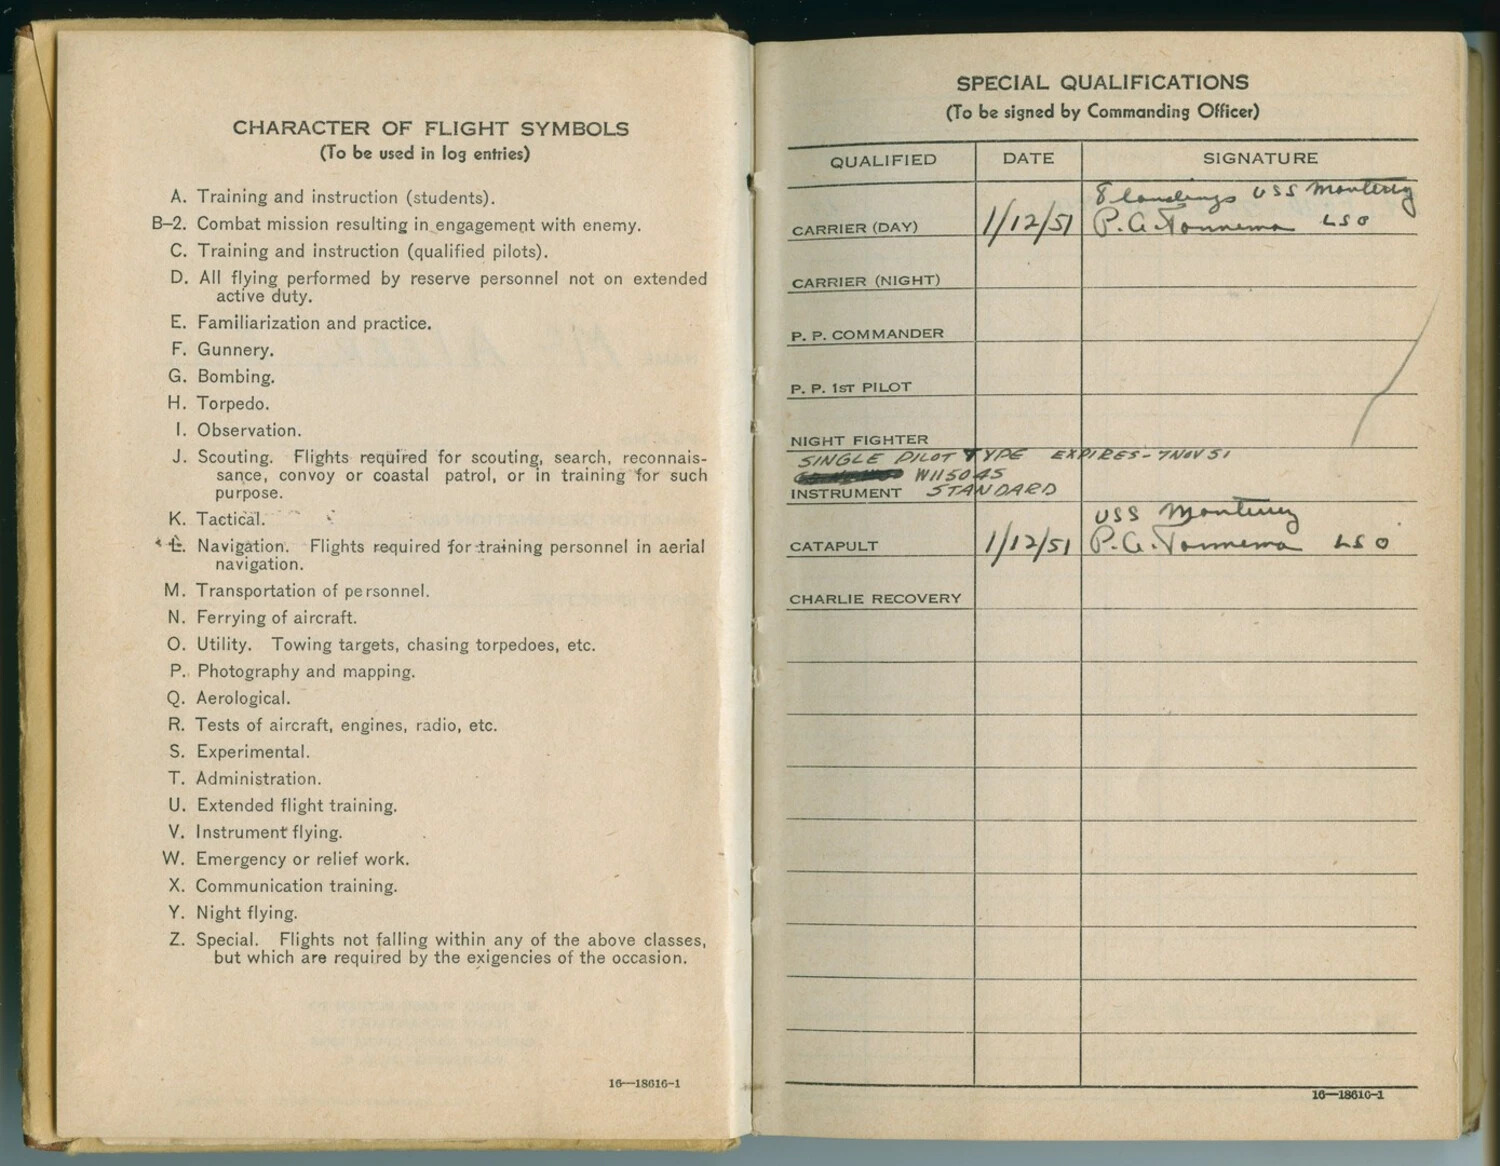 CHARACTER OF FLIGHT SYMBOLS
(To be used in log entries)
A. Training and instruction (students).
B-2. Combat mission resulting in engagement with enemy.
C. Training and instruction (qualified pilots).
D. All flying performed by reserve personnel not on extended
active duty.
E. Familiarization and practice.
F. Gunnery.
G. Bombing.
H. Torpedo.
I. Observation.
J. Scouting. Flights required for scouting, search, reconnais-
sance, convoy or coastal patrol, or in training for such
purpose.
K. Tactical.
L. Navigation. Flights required for training personnel in aerial
navigation.
M. Transportation of personnel.
N. Ferrying of aircraft.
O. Utility. Towing targets, chasing torpedoes, etc.
P. Photography and mapping.
Q. Aerological.
R. Tests of aircraft, engines, radio, etc.
S. Experimental.
T. Administration.
U. Extended flight training.
V. Instrument flying.
W. Emergency or relief work.
X. Communication training.
Y. Night flying.
Z. Special. Flights not falling within any of the above classes,
but which are required by the exigencies of the occasion.
16—18616-1
SPECIAL QUALIFICATIONS
(To be signed by Commanding Officer)
QUALIFIED DATE SIGNATURE
8 landings USS Monterey
CARRIER (DAY) 1/12/51 P.G. LSO
CARRIER (NIGHT)
P. P. COMMANDER
P. P. 1ST PILOT
NIGHT FIGHTER
SINGLE PILOT TYPE EXPIRES - 7 NOV 51
W115045
INSTRUMENT STANDARD
USS Monterey
CATAPULT 1/12/51 P.G. LSO
CHARLIE RECOVERY
16—18616-1